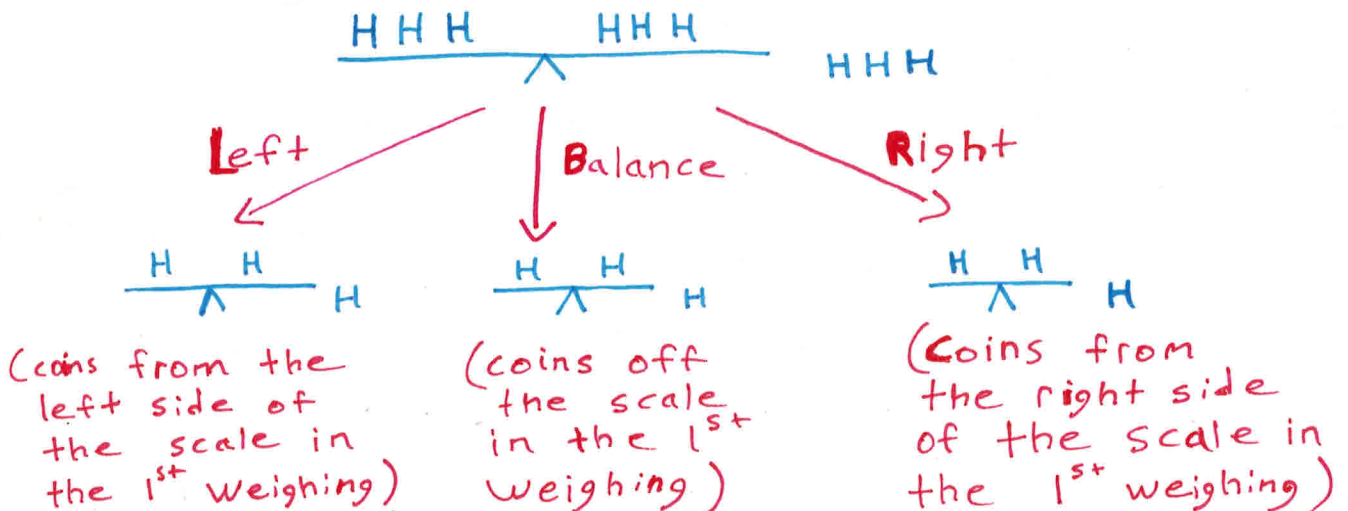 H H H H H H
H H H
Left Balance Right
H H H
H H H
H H H
(coins from the
left side of
the scale in
the 1st weighing)
(coins off
the scale
in the 1st
weighing)
(Coins from
the right side
of the scale in
the 1st weighing)